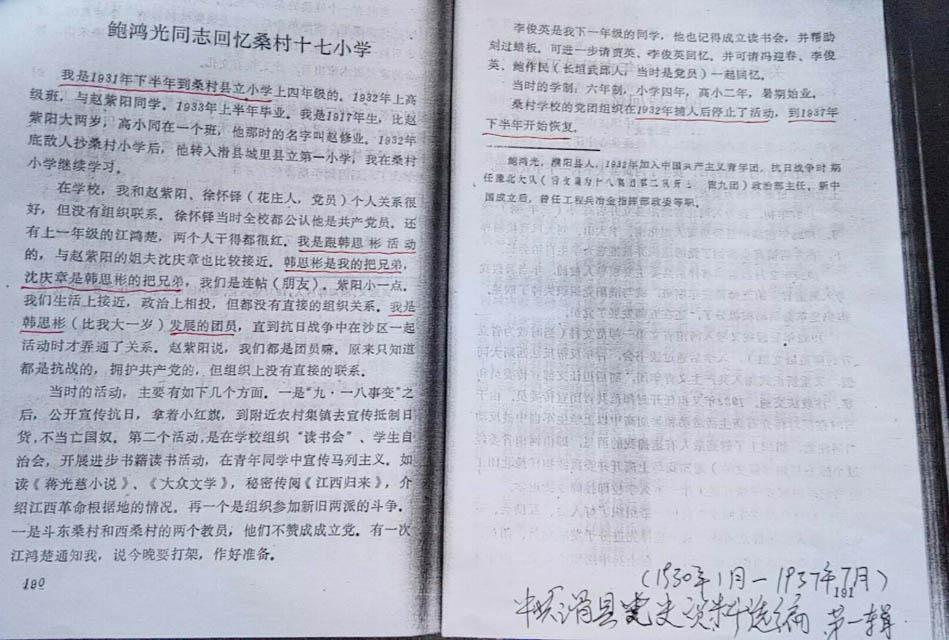 鲍鸿光同志回忆桑村十七小学
我是1931年下半年到桑村县立小学上四年级的。1932年上高
级班，与赵紫阳同学。1933年上半年毕业。我是1917年生，比赵
紫阳大两岁，高小同在一个班，他那时的名字叫赵修业。1932年
底敌人抄桑村小学后，他转入滑县城里县立第一小学，我在桑村
小学继续学习。
在学校，我和赵紫阳、徐怀铎（花庄人，党员）个人关系很
好，但没有组织联系。徐怀铎当时全校都公认他是共产党员。还
有上一年级的江鸿楚，两个人干得都很红。我是跟韩思彬活动
的，与赵紫阳的姐夫沈庆章也比较接近。韩思彬是我的把兄弟，
沈庆章是韩思彬的把兄弟，我们是连帖（朋友），紫阳小一点。
我们生活上接近，政治上相投，但都没有直接的组织关系。我是
韩思彬（比我大一岁）发展的团员，直到抗日战争中在沙区一起
活动时才弄通了关系。赵紫阳说，我们都是团员嘛。原来只知道
都是抗战的，拥护共产党的，但组织上没有直接的联系。
当时的活动，主要有如下几个方面。一是“九·一八事变”之
后，公开宣传抗日，拿着小红旗，到附近农村集镇去宣传抵制日
货，不当亡国奴。第二个活动，是在学校组织“读书会”、学生自
治会，开展进步书籍读书活动，在青年同学中宣传马列主义。如
读《蒋光慈小说》、《大众文学》，秘密传阅《江西归来》，介
绍江西革命根据地的情况。再一个是组织参加新旧两派的斗争。
一是斗东桑村和西桑村的两个教员，他们不赞成成立党。有一次
江鸿楚通知我，说今晚要打架，作好准备。
190
李俊英是我下一年级的同学，他也记得成立读书会，并帮助
刻过蜡板。可进一步请贾英、李俊英回忆。并可请冯迎春、李俊
英、鲍作民（长垣武邱人，当时是党员）一起回忆。
当时的学制：六年制，小学四年，高小二年，暑期始业。
桑村学校的党团组织在1932年捕人后停止了活动，到1937年
下半年开始恢复。
鲍鸿光，濮阳县人，1932年加入中国共产主义青年团，抗日战争时期
任豫北大队（后改编为十八集团第二纵队 ）政治部主任，新中
国成立后，曾任工程兵冶金指挥部政委等职。
191
（1930年1月—1937年7月）
中共滑县党史资料选编 第一辑